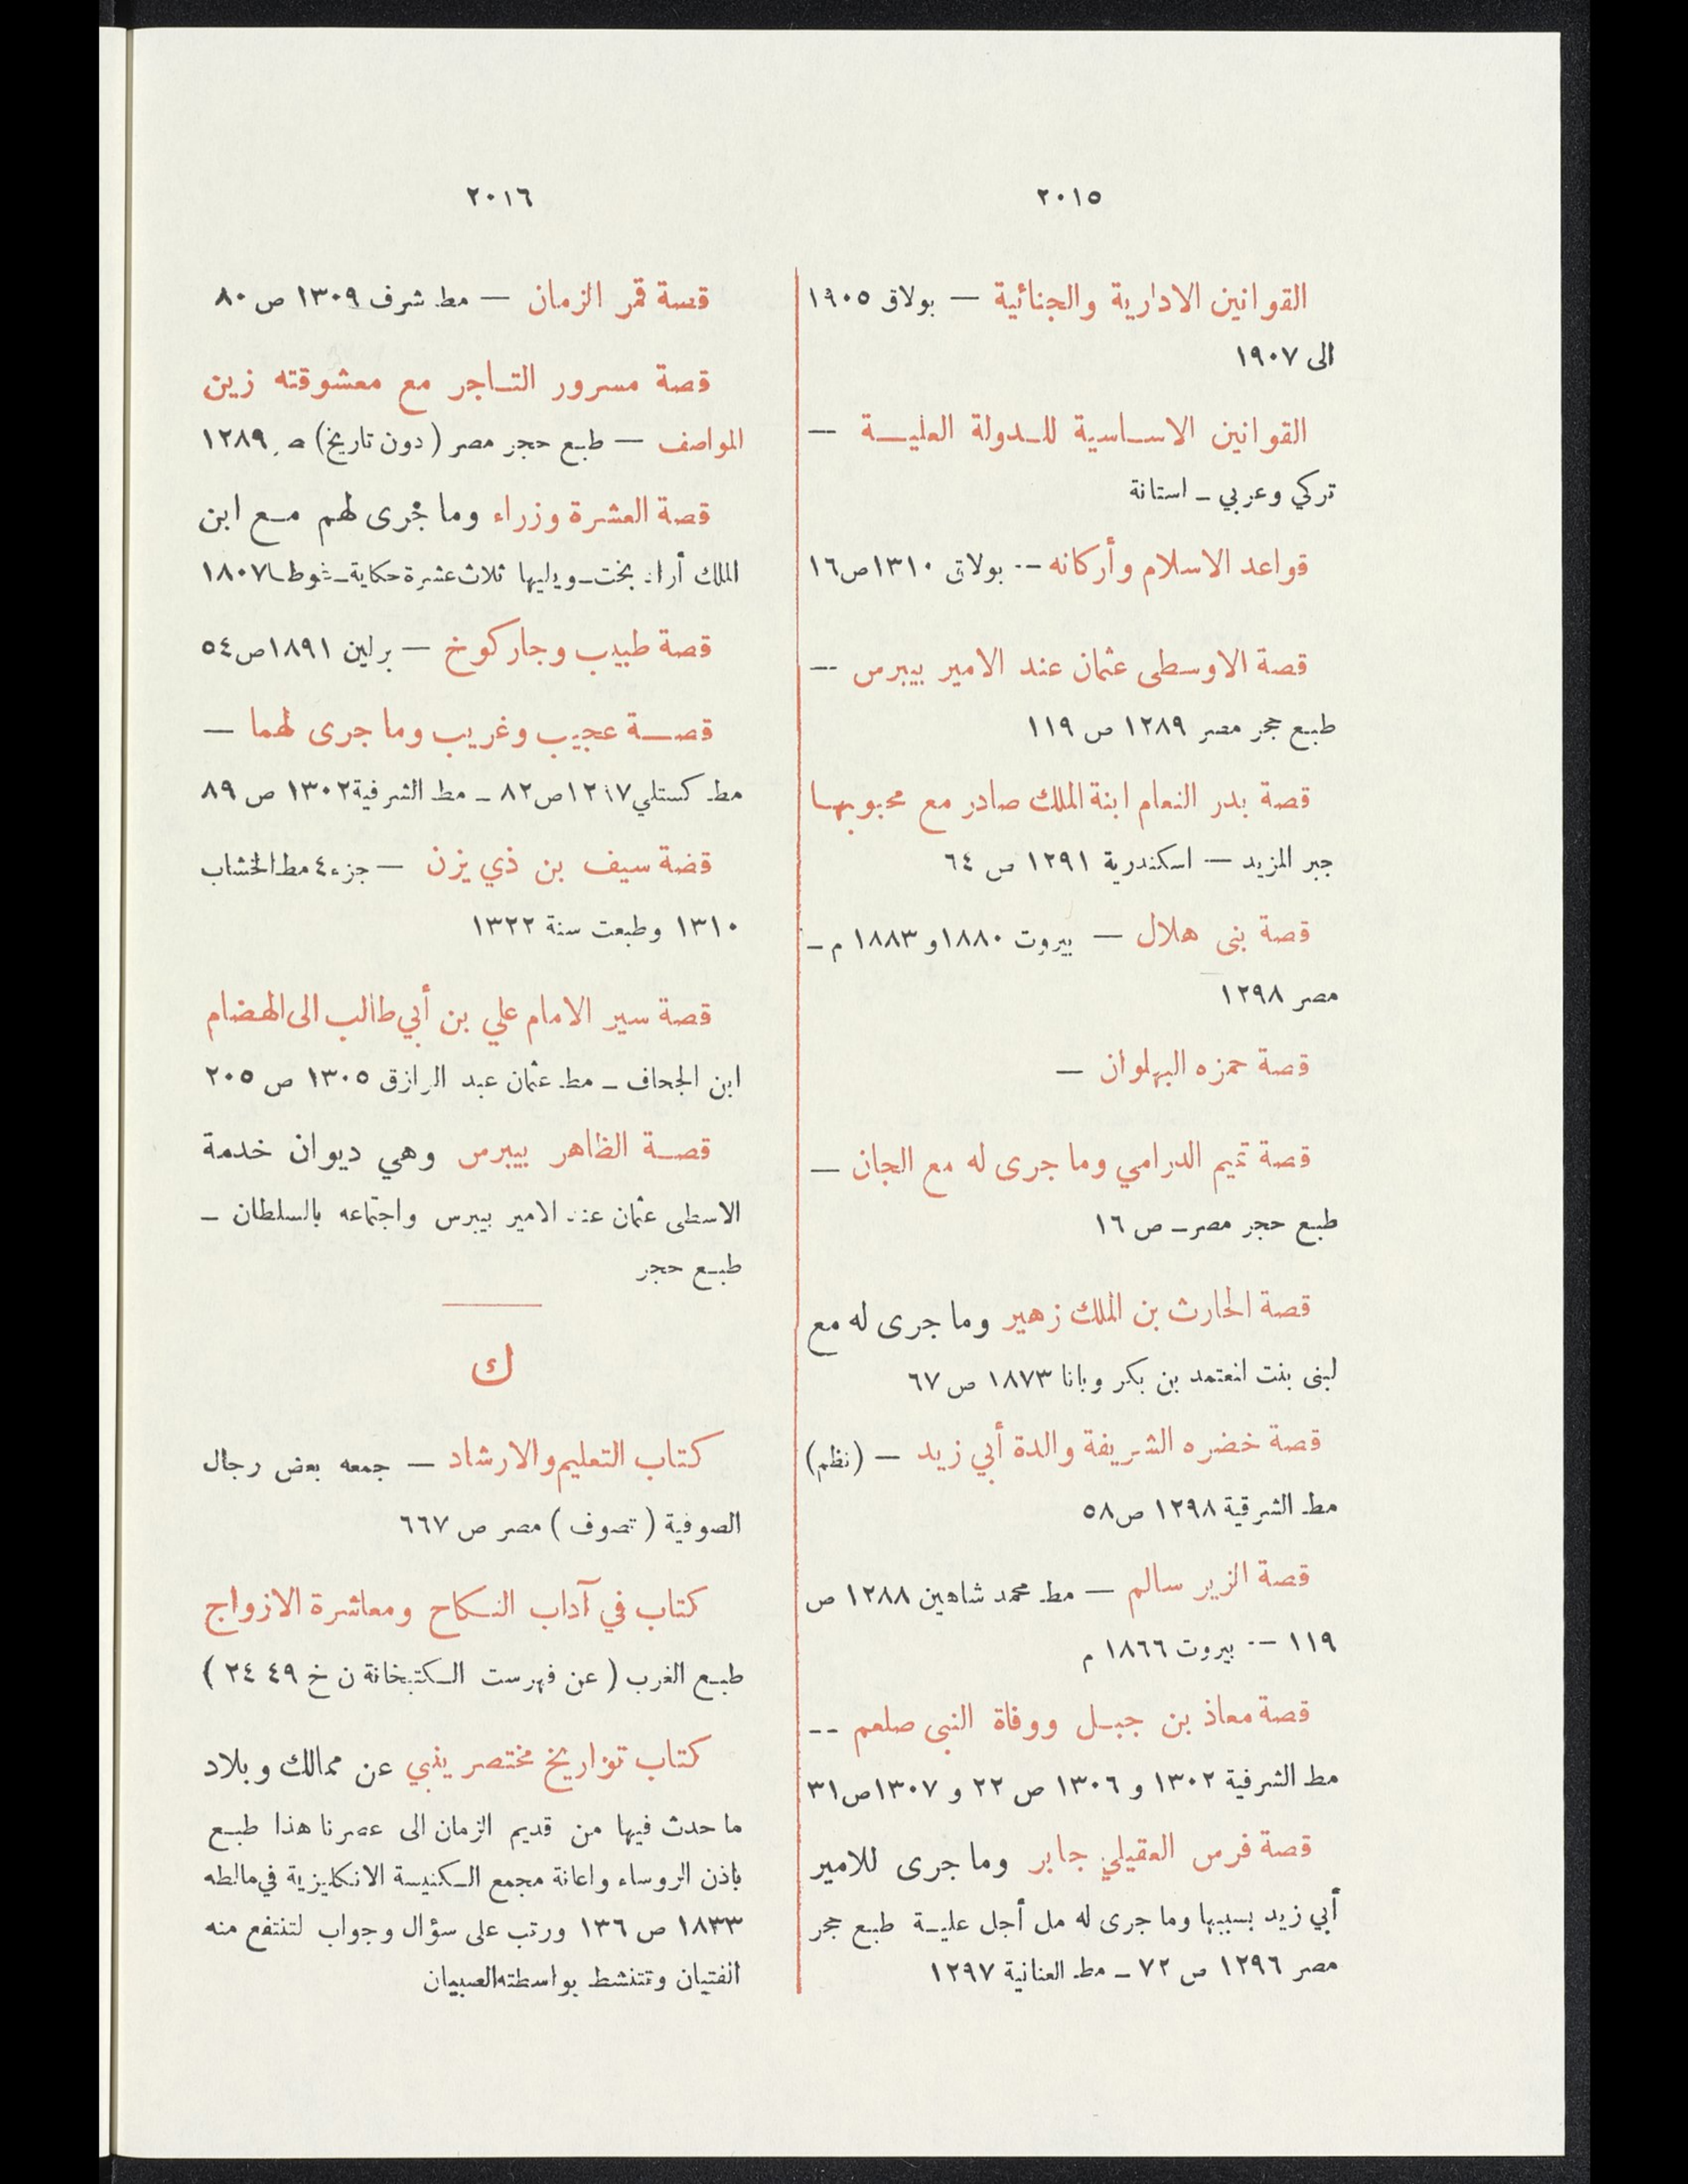 ٢٠١٥
القوانين الادارية والجنائية — بولاق ١٩٠٥
الى ١٩٠٧
القوانين الاساسية للدولة العلية —
تركي وعربي - استانة
قواعد الاسلام وأركانه -- بولاق ١٣١٠ ص ١٦
قصة الاوسطى عثمان عند الامير بيبرس --
طبع حجر مصر ١٢٨٩ ص ١١٩
قصة بدر النعام ابنة الملك صادر مع محبوبها
جبر المزيد — اسكندرية ١٢٩١ ص ٦٤
قصة بنى هلال — بيروت ١٨٨٠ و ١٨٨٣ م -
مصر ١٢٩٨
قصة حمزه البهلوان —
قصة تميم الدرامي وما جرى له مع الجان —
طبع حجر مصر - ص ١٦
قصة الحارث بن الملك زهير وما جرى له مع
لبنى بنت المعتمد بن بكر وبانا ١٨٧٣ ص ٦٧
قصة خضره الشريفة والدة أبي زيد — (نظم)
مط الشرقية ١٢٩٨ ص ٥٨
قصة الزير سالم — مط محمد شاهين ١٢٨٨ ص
١١٩ -- بيروت ١٨٦٦ م
قصة معاذ بن جبل ووفاة النبى صلعم --
مط الشرفية ١٣٠٢ و ١٣٠٦ ص ٢٢ و ١٣٠٧ ص ٣١
قصة فرس العقيلي جابر وما جرى للامير
أبي زيد بسببها وما جرى له مل أجل علية طبع حجر
مصر ١٢٩٦ ص ٧٢ - مط العنانية ١٢٩٧
٢٠١٦
قصة قمر الزمان — مط شرف ١٣٠٩ ص ٨٠
قصة مسرور التاجر مع معشوقته زين
المواصف — طبع حجر مصر (دون تاريخ) ١٢٨٩
قصة العشرة وزراء وما جرى لهم مع ابن
الملك أزاد بخت - ويليها ثلاث عشرة حكاية - غوطا ١٨٠٧
قصة طبيب وجاركوخ — برلين ١٨٩١ ص ٥٤
قصة عجيب وغريب وما جرى لهما —
مط كستلي ص ٨٢ - مط الشرفية ١٣٠٢ ص ٨٩
قضة سيف بن ذي يزن — جزء ٤ مط الخشاب
١٣١٠ وطبعت سنة ١٣٢٢
قصة سير الامام علي بن أبي طالب الى الهضام
ابن الجحاف - مط عثمان عبد الرازق ١٣٠٥ ص ٢٠٥
قصة الظاهر بيبرس وهي ديوان خدمة
الاسطى عثمان عند الامير بيبرس واجتماعه بالسلطان -
طبع حجر
ك
كتاب التعليم والارشاد — جمعه بعض رجال
الصوفية (تصوف) مصر ص ٦٦٧
كتاب في آداب النكاح ومعاشرة الازواج
طبع الغرب (عن فهرست الكتبخانة ن خ ٤٩ ٢٤)
كتاب تواريخ مختصر ينبي عن ممالك وبلاد
ما حدث فيها من قديم الزمان الى عصرنا هذا طبع
باذن الروساء واعانة مجمع الكنيسة الانكليزية في مالطه
١٨٣٣ ص ١٣٦ ورتب على سؤال وجواب لتنتفع منه
الفتيان وتتنشط بواسطته الصبيان